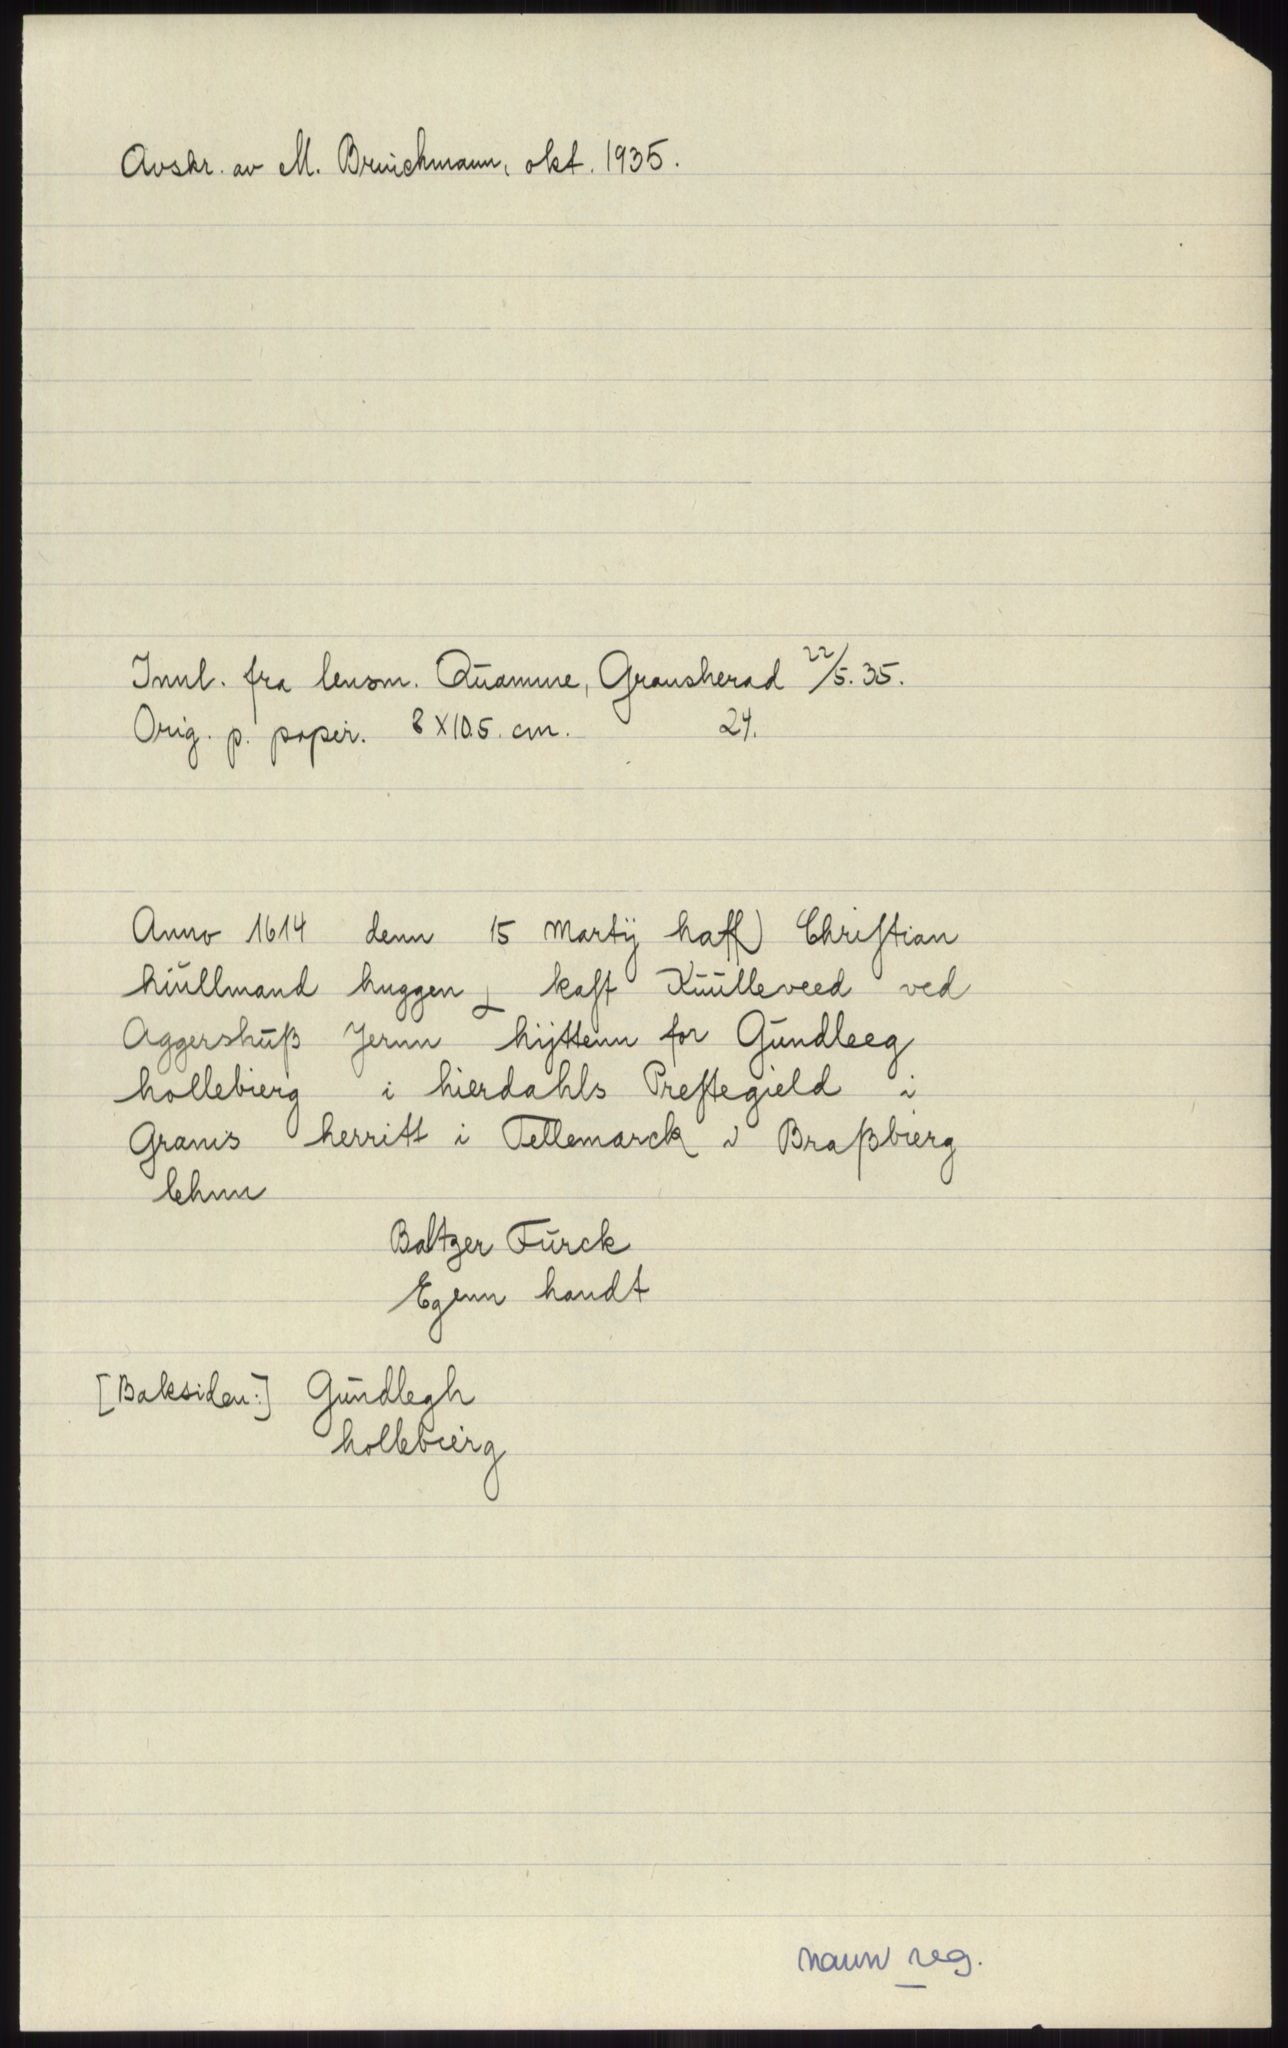 Avskr. av M. Bruichmann, okt. 1935.
Innl. fra lensm. Quamme, Gransherad 22/5. 35.
Orig. p. papir. 8 X 10.5. cm. 24.
Anno 1614 denn 15 Martÿ haff) Christian
hŭllmand huggen kast Kŭŭlleveed ved
Aggershŭß Jernn hÿttenn for Gŭndleeg
hollebierg i hierdahls Prestegield i
Granis herritt i Tellemarck i Braßbierg
lehnn
Baltzer Tŭrck
Egenn handt
[Baksiden:] Gŭndlegh
hollebierg
navn reg.